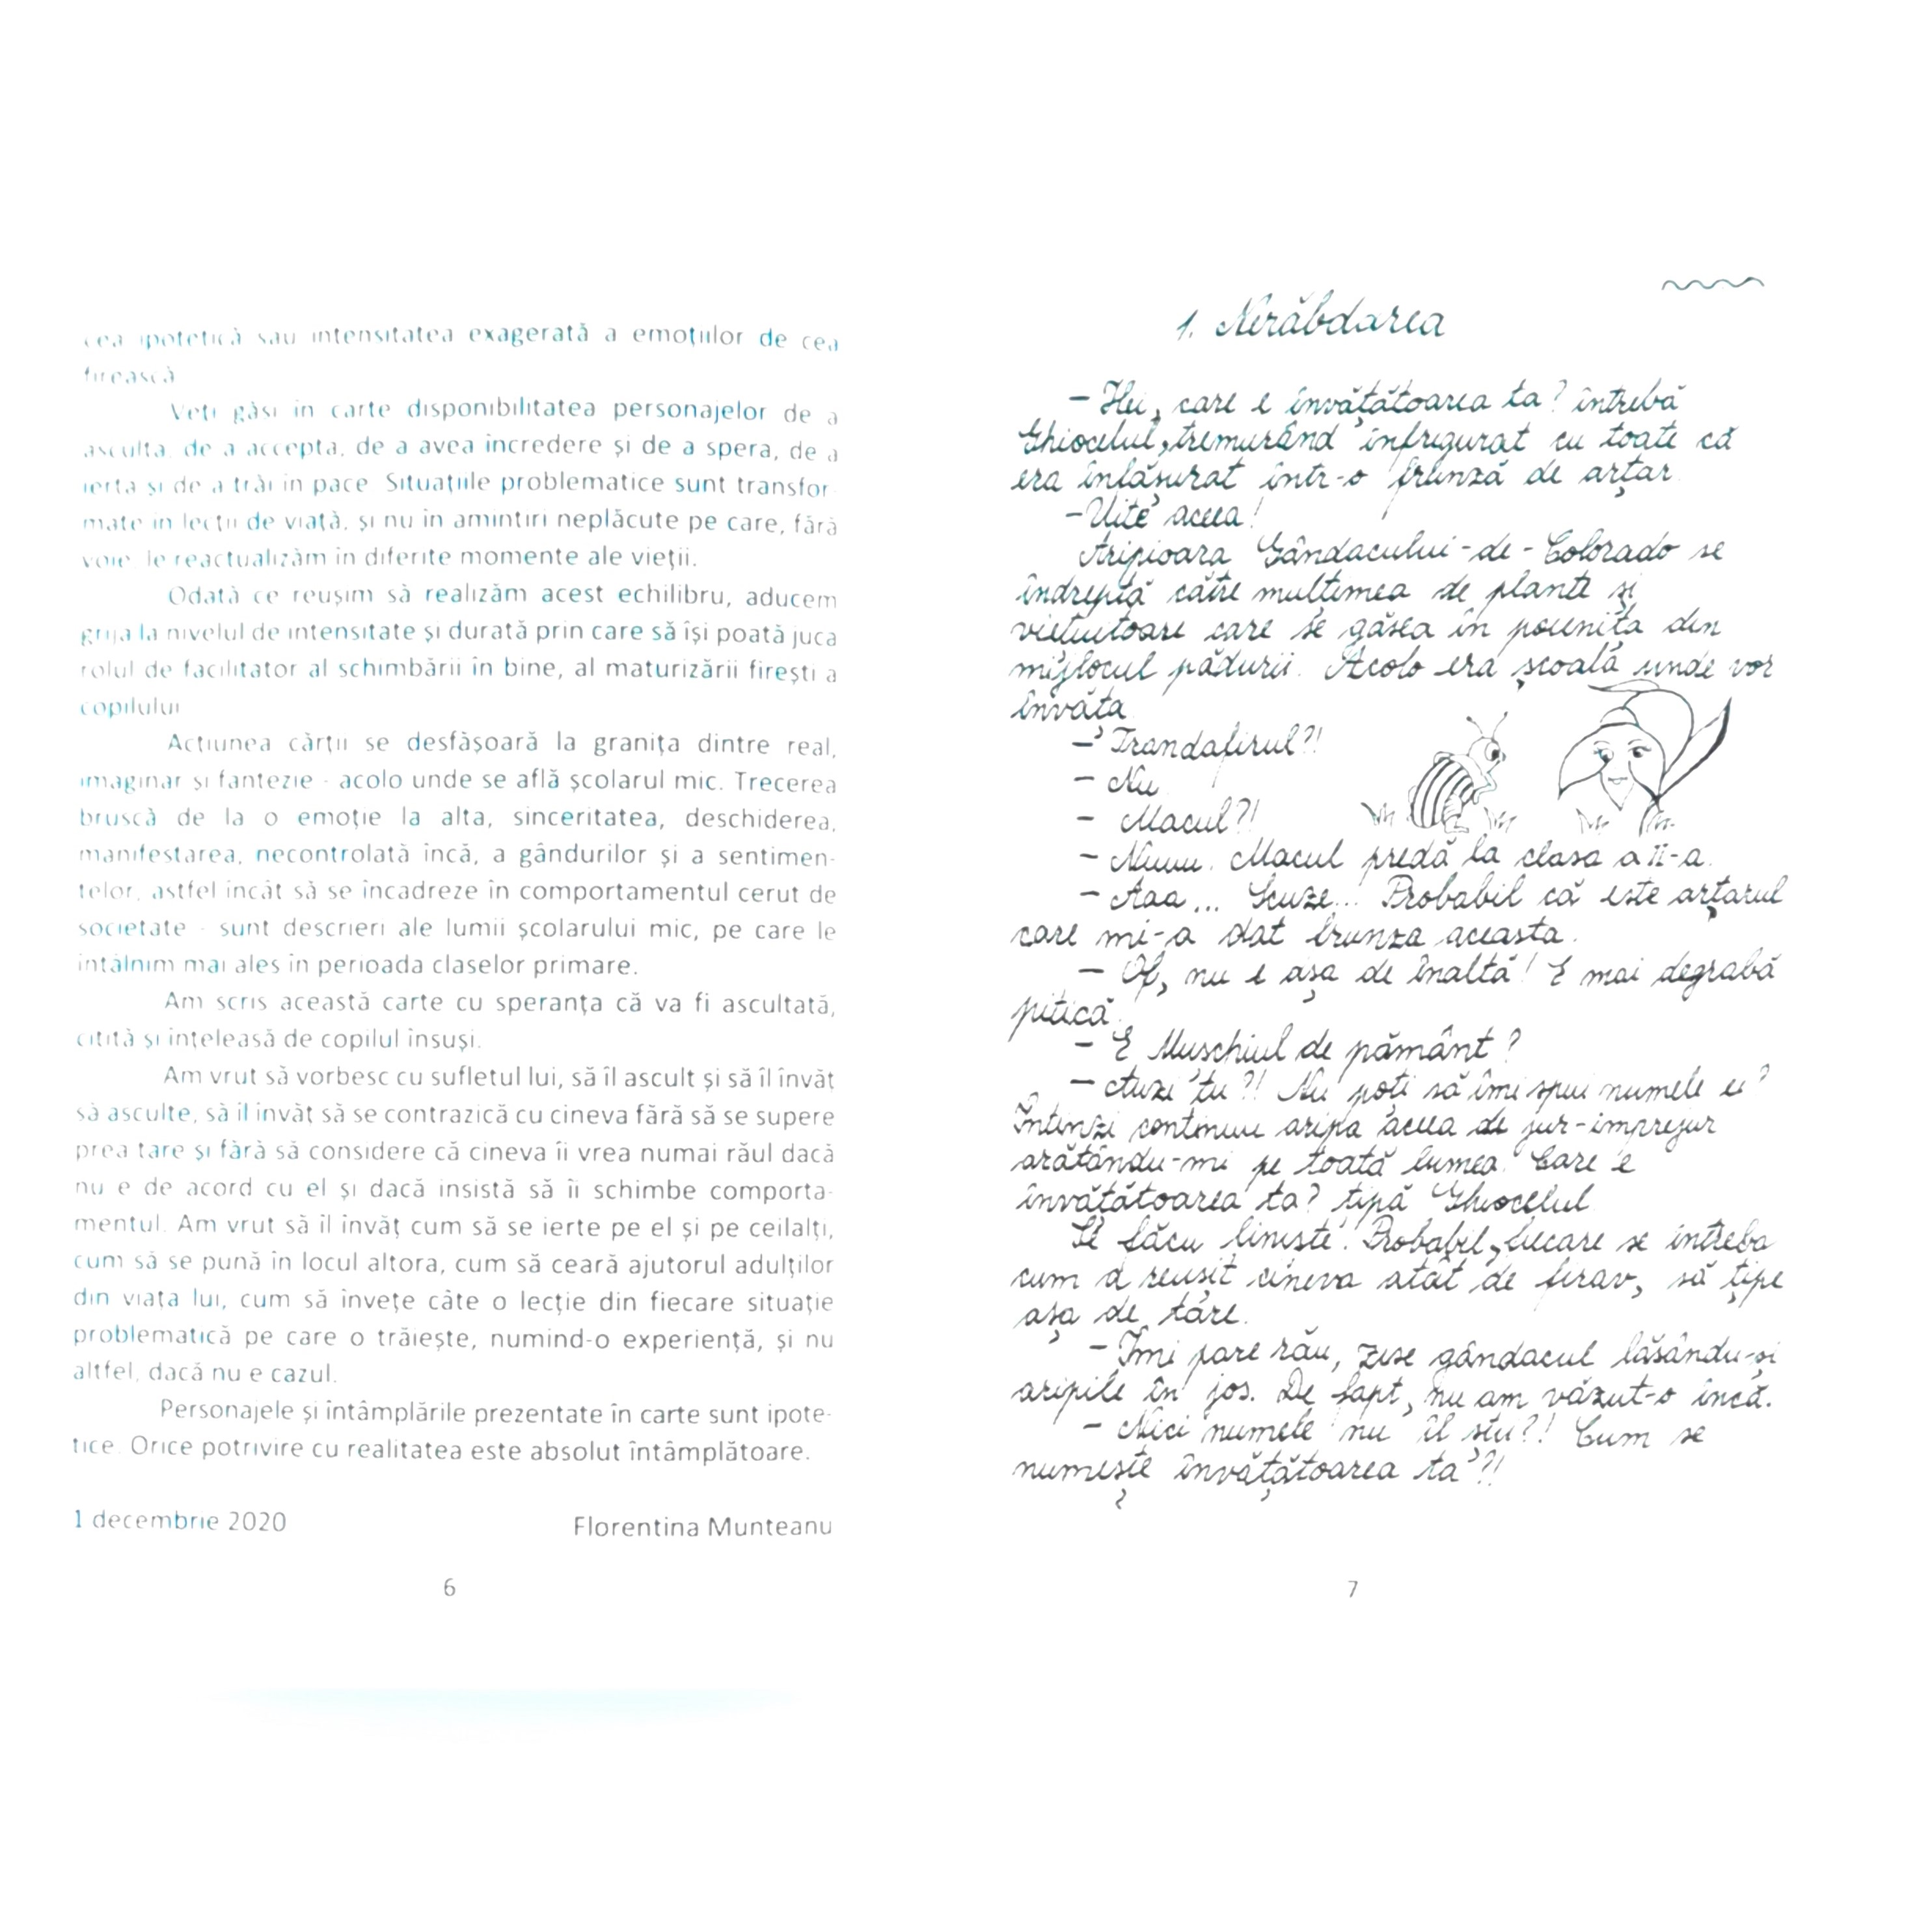 cea ipotetică sau intensitatea exagerată a emoțiilor de cea
firească
Veți găsi în carte disponibilitatea personajelor de a
asculta, de a accepta, de a avea încredere și de a spera, de a
ierta și de a trăi în pace. Situațiile problematice sunt transfor-
mate în lecții de viață, și nu în amintiri neplăcute pe care, fără
voie, le reactualizăm în diferite momente ale vieții.
Odată ce reușim să realizăm acest echilibru, aducem
grija la nivelul de intensitate și durată prin care să își poată juca
rolul de facilitator al schimbării în bine, al maturizării firești a
copilului
Acțiunea cărții se desfășoară la granița dintre real,
imaginar și fantezie - acolo unde se află școlarul mic. Trecerea
bruscă de la o emoție la alta, sinceritatea, deschiderea,
manifestarea, necontrolată încă, a gândurilor și a sentimen-
telor, astfel încât să se încadreze în comportamentul cerut de
societate - sunt descrieri ale lumii școlarului mic, pe care le
întâlnim mai ales în perioada claselor primare.
Am scris această carte cu speranța că va fi ascultată,
citită și înțeleasă de copilul însuși.
Am vrut să vorbesc cu sufletul lui, să îl ascult și să îl învăț
să asculte, să îl învăț să se contrazică cu cineva fără să se supere
prea tare și fără să considere că cineva îi vrea numai răul dacă
nu e de acord cu el și dacă insistă să îi schimbe comporta-
mentul. Am vrut să îl învăț cum să se ierte pe el și pe ceilalți,
cum să se pună în locul altora, cum să ceară ajutorul adulților
din viața lui, cum să învețe câte o lecție din fiecare situație
problematică pe care o trăiește, numind-o experiență, și nu
altfel, dacă nu e cazul.
Personajele și întâmplările prezentate în carte sunt ipote-
tice. Orice potrivire cu realitatea este absolut întâmplătoare.
1 decembrie 2020
Florentina Munteanu
6
1. Nerăbdarea
- Hei, care e învățătoarea ta? întrebă
Ghiocelul, tremurând înfrigurat cu toate că
era înfășurat într-o frunză de arțar.
- Uite aceea!
Aripioara Gândacului-de-Colorado se
îndreptă către mulțimea de plante și
viețuitoare care se găsea în poienița din
mijlocul pădurii. Acolo era școala unde vor
învăța.
- Trandafirul?!
- Nu
- Macul?!
- Nuuu. Macul predă la clasa a II-a.
- Aaa... Scuze... Probabil că este arțarul
care mi-a dat frunza aceasta.
- Of, nu e așa de înaltă! E mai degrabă
pitică.
- E Mușchiul de pământ?
- Auzi tu?! Nu poți să îmi spui numele ei?
Întinzi continuu aripa aceea de jur-împrejur
arătându-mi pe toată lumea. Care e
învățătoarea ta? țipă Ghiocelul.
Se făcu liniște. Probabil, fiecare se întreba
cum a reușit cineva atât de firav, să țipe
așa de tare.
- Îmi pare rău, zise gândacul lăsându-și
aripile în jos. De fapt, nu am văzut-o încă.
- Nici numele nu îl știi?! Cum se
numește învățătoarea ta?!
7